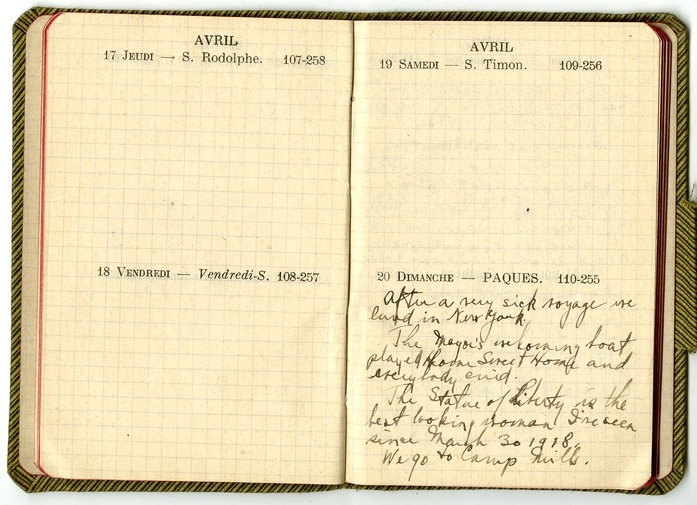 AVRIL
17 JEUDI — S. Rodolphe. 107-258
18 VENDREDI — Vendredi-S. 108-257
AVRIL
19 SAMEDI — S. Timon. 109-256
20 DIMANCHE — PAQUES. 110-255
After a very sick voyage we
land in New York.
The Mayor's welcoming boat
played Home Sweet Home and
everybody cried.
The Statue of Liberty is the
best looking woman I've seen
since March 30 1918.
We go to Camp Mills.